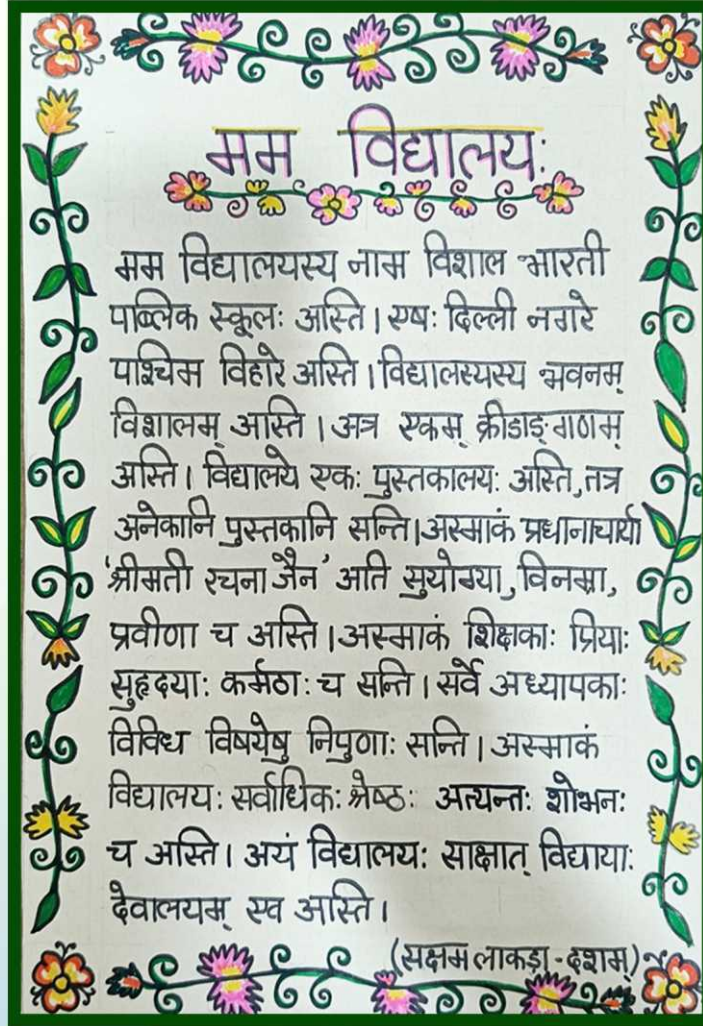 मम विद्यालयः
मम विद्यालयस्य नाम विशाल भारती
पब्लिक स्कूलः अस्ति। एषः दिल्ली नगरे
पश्चिम विहारे अस्ति। विद्यालस्यस्य भवनम्
विशालम् अस्ति। अत्र एकम् क्रीडाङ्गणम्
अस्ति। विद्यालये एकः पुस्तकालयः अस्ति, तत्र
अनेकानि पुस्तकानि सन्ति। अस्माकं प्रधानाचार्या
'श्रीमती रचना जैन' अति सुयोग्या, विनम्रा,
प्रवीणा च अस्ति। अस्माकं शिक्षकाः प्रियाः
सुहृदयाः कर्मठाः च सन्ति। सर्वे अध्यापकाः
विविध विषयेषु निपुणाः सन्ति। अस्माकं
विद्यालयः सर्वाधिकः श्रेष्ठः अत्यन्तः शोभनः
च अस्ति। अयं विद्यालयः साक्षात् विद्यायाः
देवालयम् एव अस्ति।
(सक्षम लाकड़ा - दशम्)